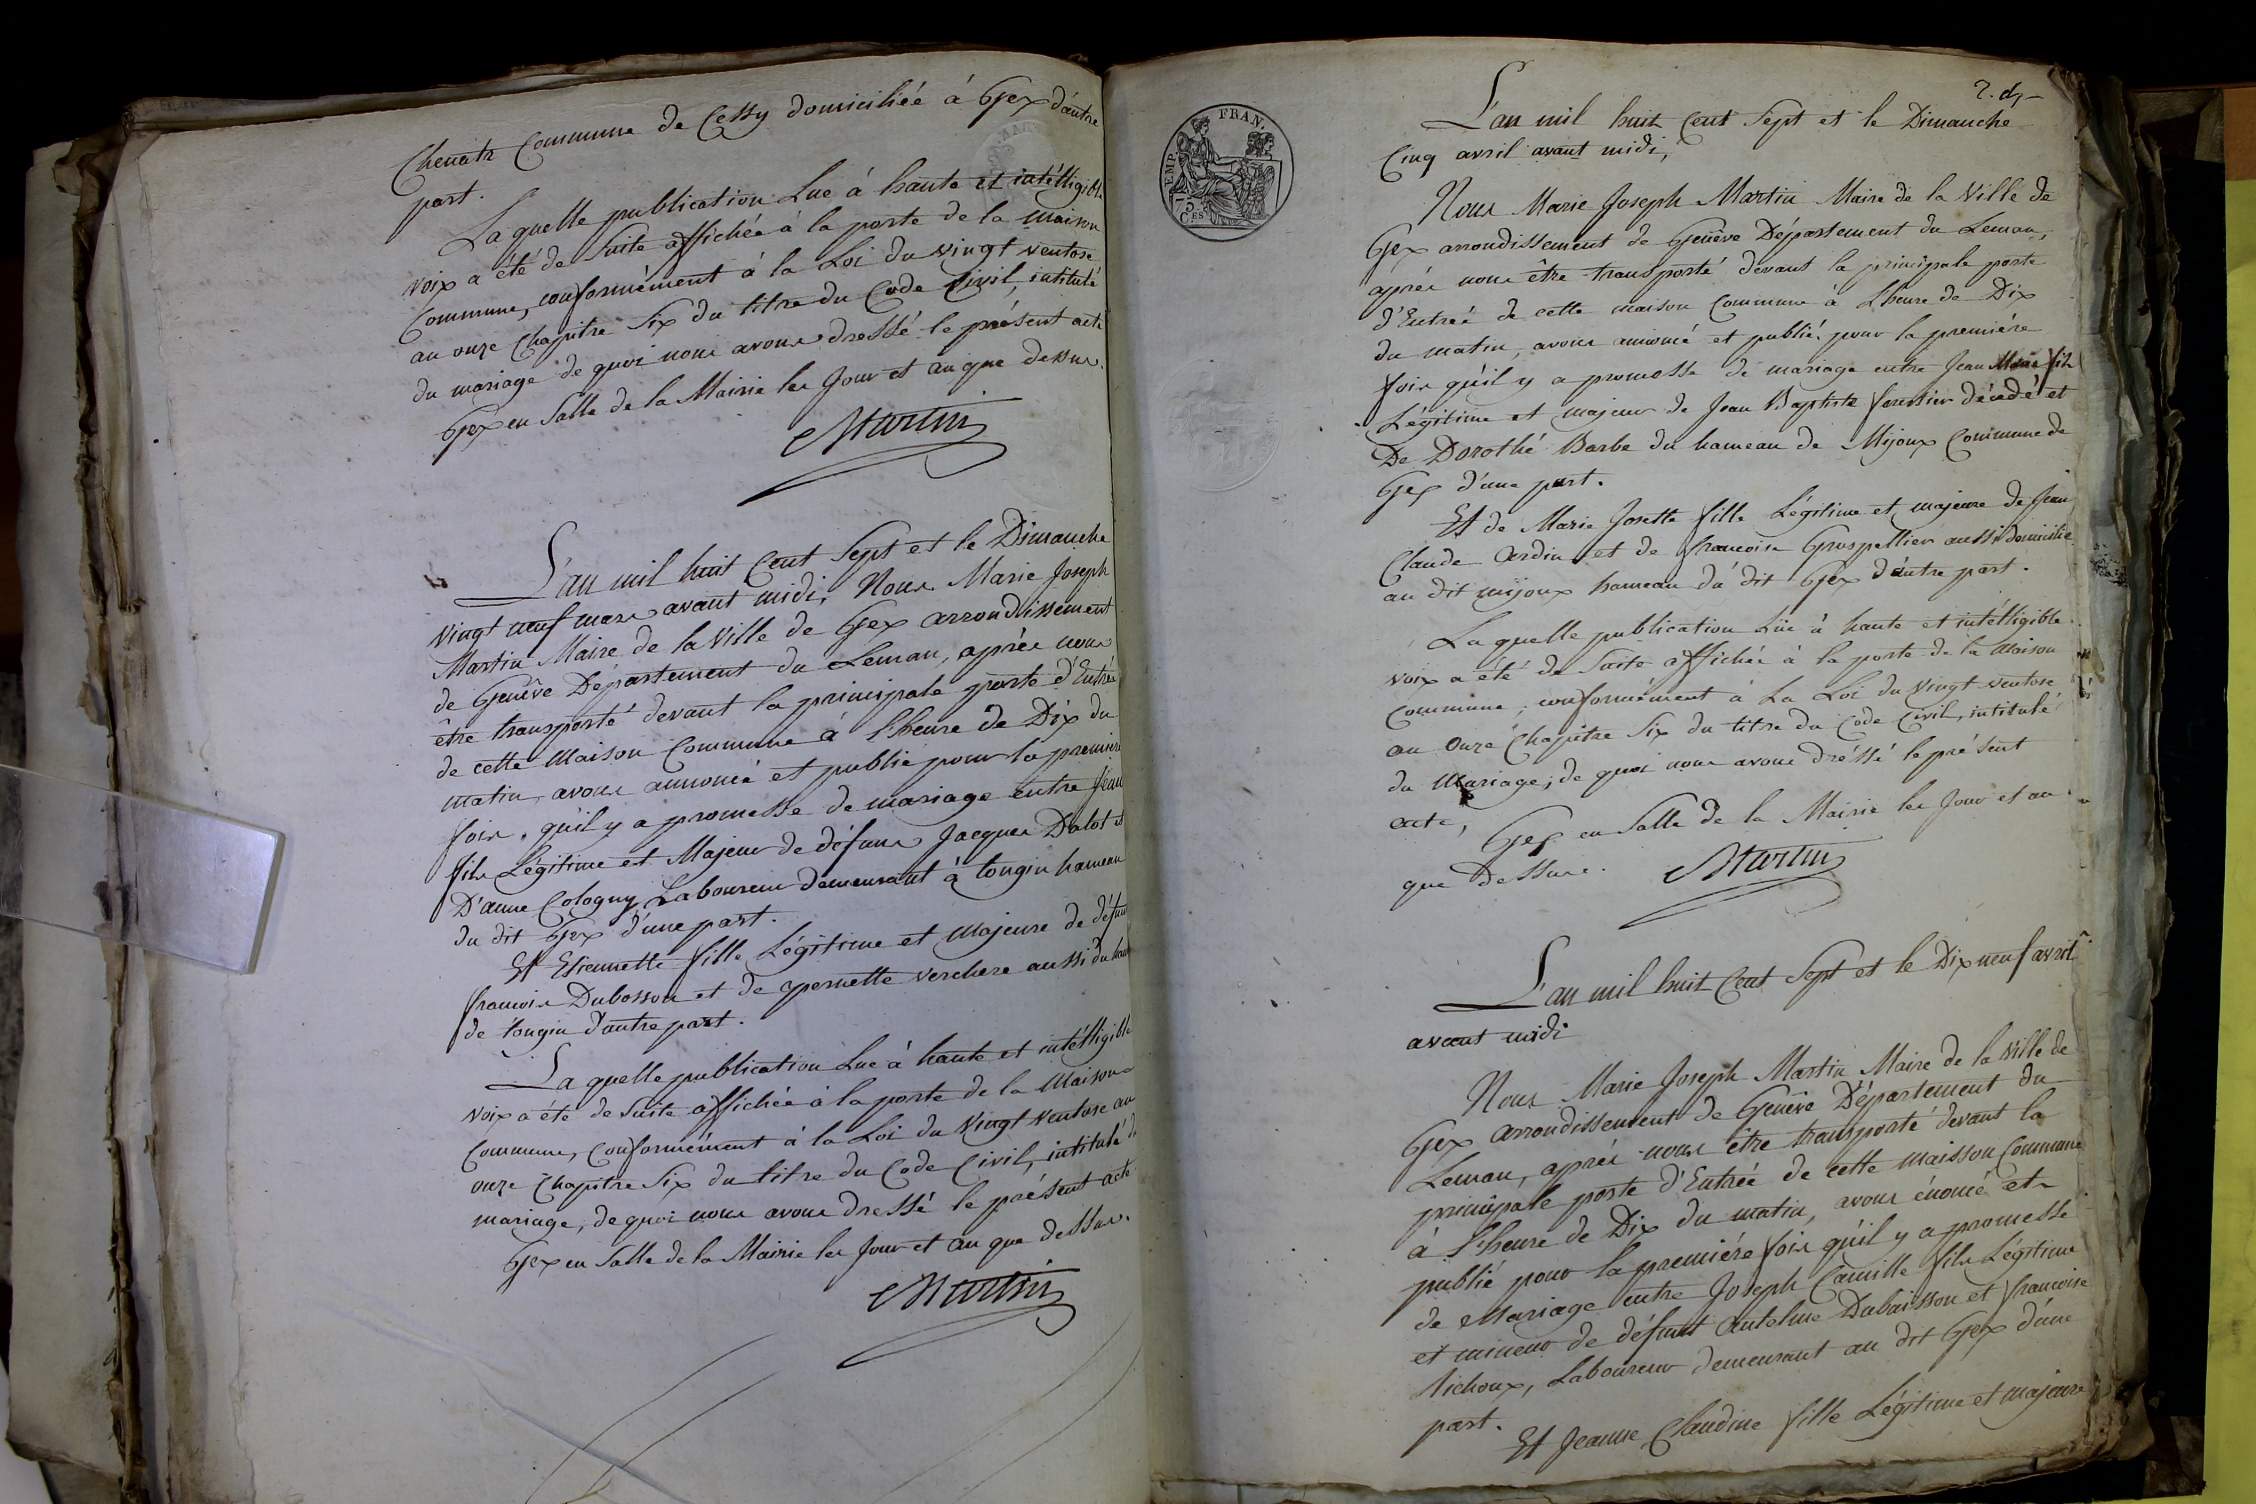 Commune de Cessy domiciliée à Gex d'autre
part.
La quelle publication Lue à haute et intélligible
voix a été de Suite affichée à la porte de la maison
Commune, conformément à la Loi du vingt ventose
an onze Chapitre Six du titre du Code Civil, intitulé
du mariage de quoi nous avons dressé le présent acte
Gex en Salle de la Mairie les Jour et an que dessus.
Martin
L'an mil huit Cent Sept et le Dimanche
vingt neuf mars avant midi, Nous Marie Joseph
Martin Maire de la Ville de Gex arrondissement
de Genêve Département du Leman, après nous
être transporté devant la principale porte d'Entrée
de cette Maison Commune à L'heure de Dix du
matin, avons annoncé et publié pour la premiere
fois, qu'il y a promesse de mariage entre Jean
fils Légitime et Majeur de défunt Jacques Dalot et
D'anne Cologny Laboureur demeurant à tougin hameau
du dit Gex d'une part.
Et Etiennette fille Légitime et majeure de défunt
francois Dubosson et de pernette verchere aussi du ham
de tougin d'autre part.
La quelle publication Lue à haute et intélligible
voix a été de Suite affichée à la porte de la Maison
Commune, Conformément à la Loi du Vingt ventose an
onze Chapitre Six du titre du Code Civil, intitulé du
mariage, de quoi nous avons dressé le présent acte
Gex en Salle de la Mairie les Jour et an que dessus.
Martin
FRAN.
EMP.
75
C.ES
L'an mil huit Cent Sept et le Dimanche
Cinq avril avant midi,
Nous Marie Joseph Martin Maire de la Ville de
Gex arrondissement de Genève Département du Leman,
après nous être transporté devant la principale porte
d'Entrée de cette maison Commune à L'heure de Dix
du matin, avons annoncé et publié pour la premiére
fois qu'il y a promesse de mariage entre Jean Marie fils
Légitime et majeur de Jean Baptiste fournier décédé et
De Dorothé Barbe du hameau de Mijoux Commune de
Gex d'une part.
Et de Marie Josette fille Légitime et majeure de Jean
Claude ardin et de francoise Grospellier aussi domicilié
au dit mijoux hameau du dit Gex d'autre part.
La quelle publication Lüe à haute et intélligible
voix a été de Suite affichée à la porte de la Maison
Commune, conformément à La Loi du vingt ventose
an onze Chapitre Six du titre du Code Civil, intitulé
du Mariage, de quoi nous avons dréssé le présent
acte,
Gex en Salle de la Mairie les Jour et an
que Dessus.
Martin
L'an mil huit Cent Sept et le Dix neuf avril
avant midi
Nous Marie Joseph Martin Maire de la Ville de
Gex arrondissement de Genêve Département du
Leman, après nous être transporté devant la
principale porte d'Entrée de cette maisson Commune
à L'heure de Dix du matin, avons énoncé et
publié pour la premiére fois qu'il y a promesse
de Mariage entre Joseph Camille fils Légitime
et mineur de défunt antelme Dubuisson et francoise
Michoux, Laboureur demeurant au dit Gex d'une
part.
Et Jeanne Claudine fille Légitime et majeure